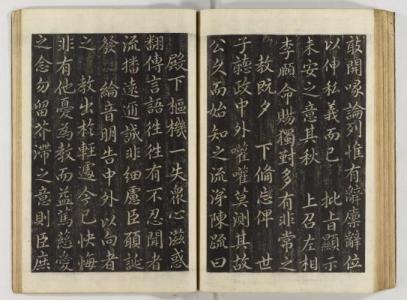 敢開喙論列惟有辭廩辭位
以伸私義而已 批旨顯示
未安之意其秋 上召左相
李頤命賜獨對多有非常之
教旣夕 下備忘俾 世
子聽政中外嚾嚾莫測其故
公久而始知之流涕陳疏曰
殿下樞機一失衆心滋惑
翻傳言語徃徃有不忍聞者
流播遠邇誠非細慮臣願誕
發 綸音明告中外以向者
之 敎出於輕遽今已快悔
非有他憂爲敎而益篤慈愛
之念勿留芥滯之意則臣庶